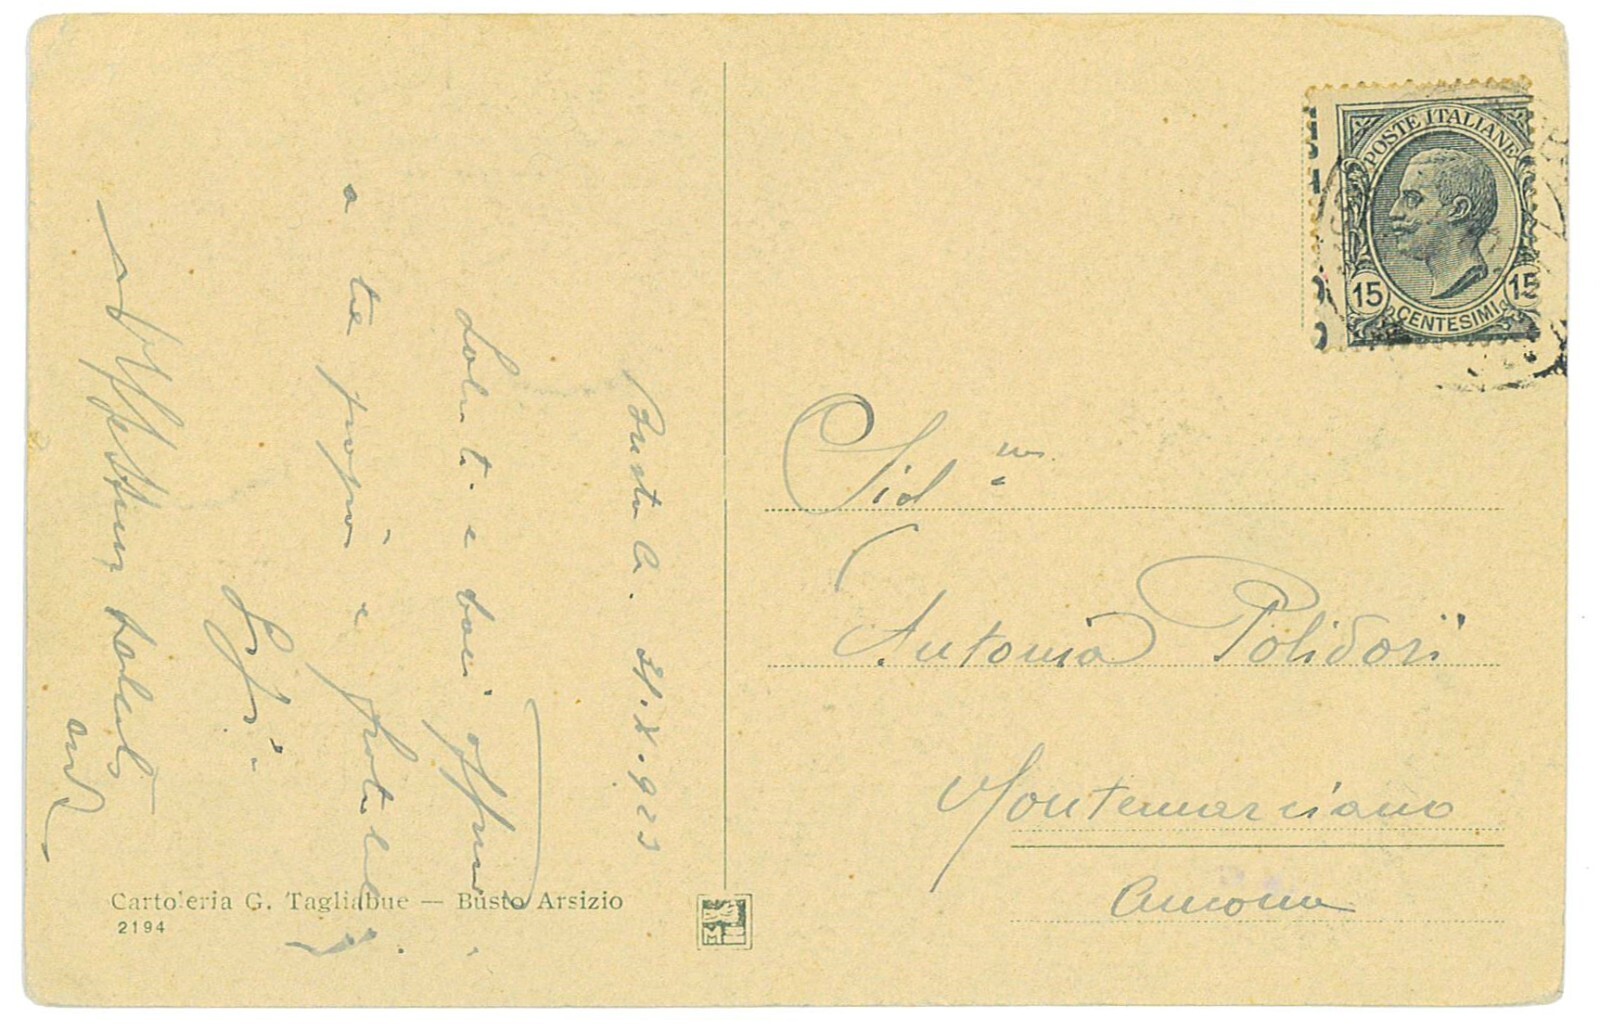 Busto A. 21.X.923
Saluti e baci affmi
a te papà e fratelli
Gigi
Affettuosi saluti
Cartoleria G. Tagliabue — Busto Arsizio
2194
POSTE ITALIANE
15 15
CENTESIMI
Antonia Polidori
Montemarciano
Ancona